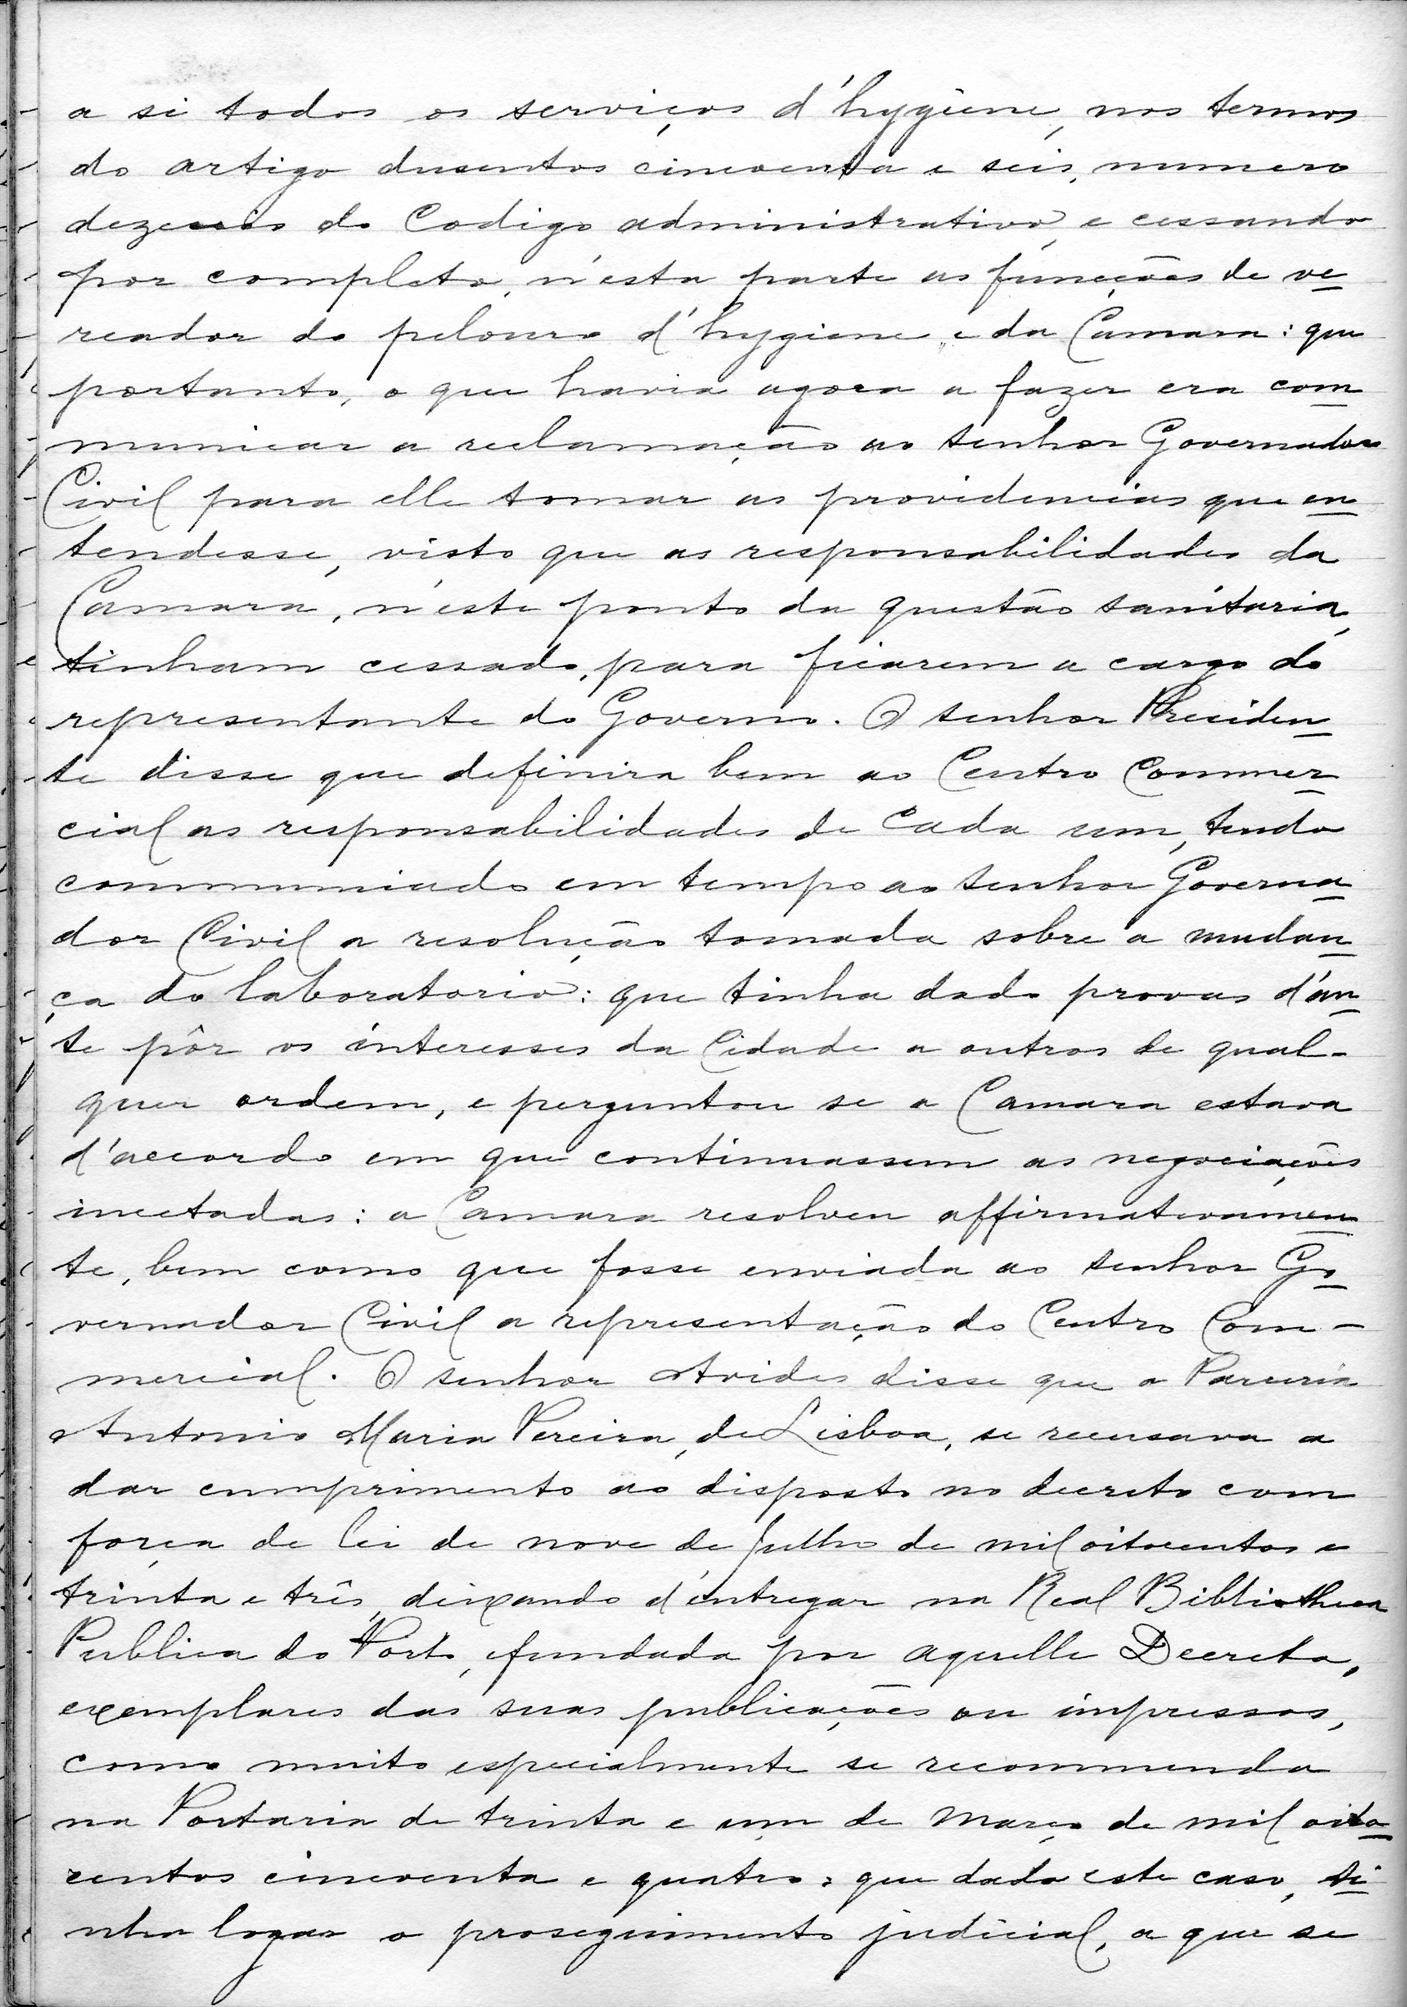 a si todos os serviços d'hygiene, nos termos
do artigo dusentos cincoenta e seis, numero
dezeseis do Codigo administrativo, e cessando
por completo, n'esta parte as funcções de ve
reador do pelouro d'hygiene e da Camara: que
portanto, o que havia agora a fazer era com
municar a reclamação ao senhor Governador
Civil para elle tomar as providencias que en
tendesse, visto que as responsabilidades da
Camara, n'este ponto da questão sanitaria,
tinham cessado, para ficarem a cargo do
representante do Governo. O senhor Presiden
te disse que definira bem ao Centro Commer
cial as responsabilidades de cada um, tendo
communicado em tempo ao senhor Governa
dor Civil a resolução tomada sobre a mudan
ça do laboratorio: que tinha dado provas d'an
te pôr os interesses da Cidade a outros de qual-
quer ordem, e perguntou se a Camara estava
d'accordo em que continuassem as negociações
incetadas: a Camara resolveu affirmativamen
te, bem como que fosse enviada ao senhor Go
vernador Civil a representação do Centro Com-
mercial. O senhor Avides disse que a Parceria
Antonio Maria Pereira, de Lisboa, se recusava a
dar cumprimento ao disposto no decreto com
força de lei de nove de Julho de mil oitocentos e
trinta e três, deixando d'entregar na Real Bibliotheca
Publica do Porto, fundada por aquelle Decreto,
exemplares das suas publicações ou impressos,
como muito especialmente se recommenda
na Portaria de trinta e um de Março de mil oito
centos cincoenta e quatro: que dado este caso, ti
nha logar o proseguimento judicial, a que se